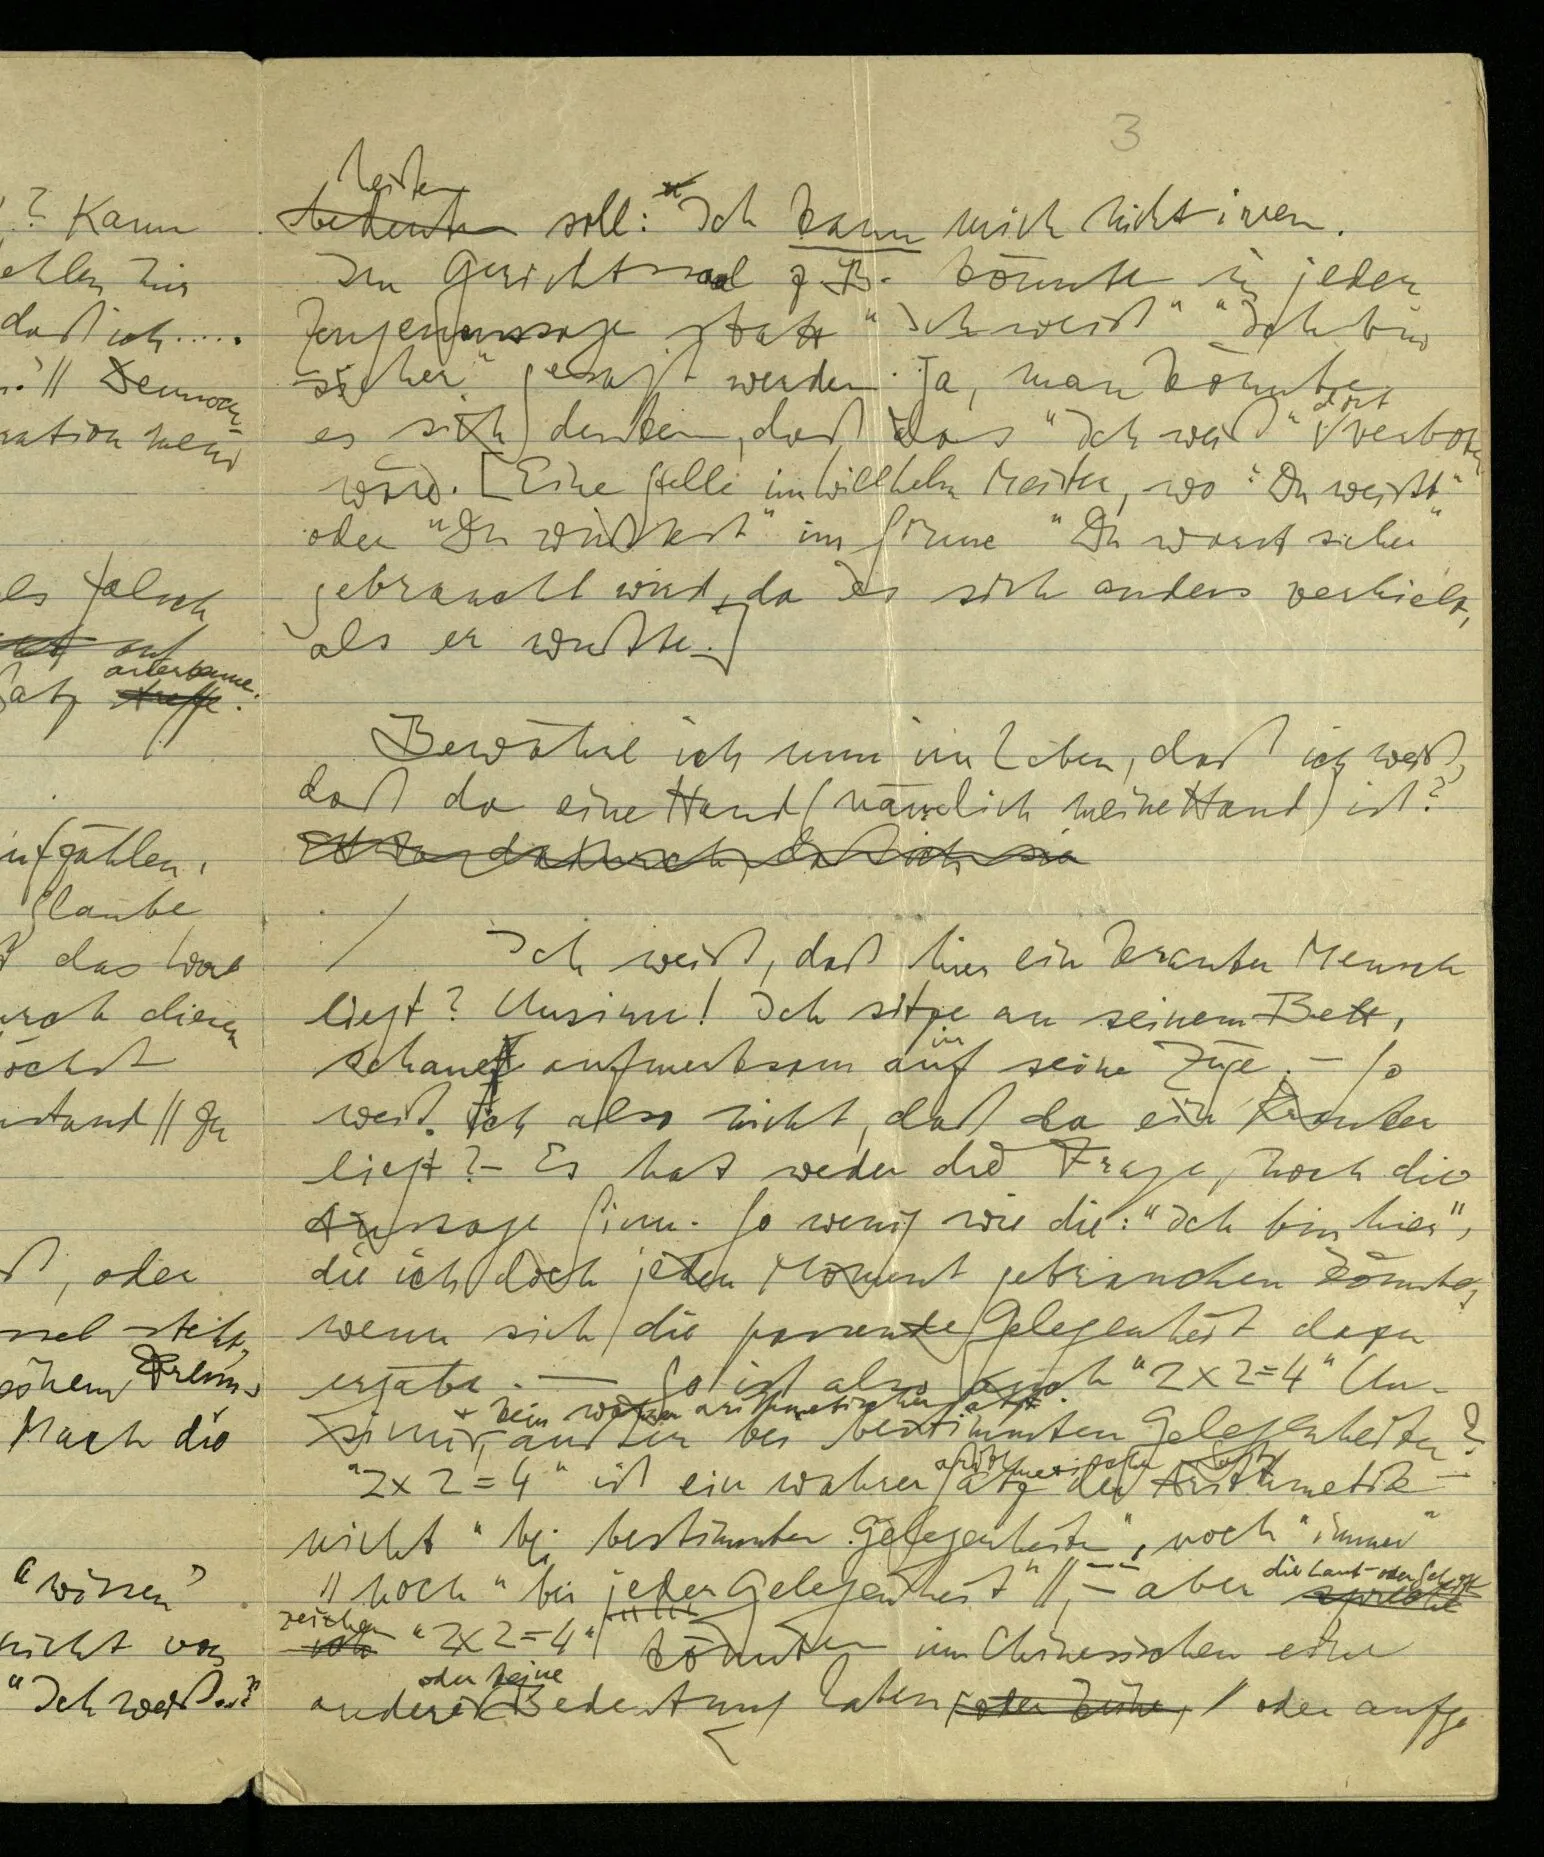 3
heißen
bedeuten soll: "Ich kann mich nicht irren.
Im Gerichtssaal z.B. könnte in jeder
Zeugenaussage statt "Ich weiß" "Ich bin
sicher" gesagt werden. Ja, man könnte
es sich denken, daß das "Ich weiß" dort verboten
wäre. [Eine Stelle im Wilhelm Meister, wo "Du weißt"
oder "Du wußtest" im Sinne "Du warst sicher"
gebraucht wird, da es sich anders verhielt,
als er wußte.]
Bewähre ich nun im Leben, daß ich weiß,
daß da eine Hand (nämlich meine Hand) ist?
dadurch, daß ich
/ Ich weiß, daß hier ein kranker Mensch
liegt? Unsinn! Ich sitze an seinem Bett,
schaue aufmerksam in auf seine Züge. – So
weiß ich also nicht, daß da ein Kranker
liegt? – Es hat weder die Frage, noch die
Aussage Sinn. So wenig wie die: "Ich bin hier",
die ich doch jeden Moment gebrauchen könnte,
wenn sich die passende Gelegenheit dazu
ergäbe. — So ist also auch "2×2=4" Un-
+ kein wahrer arithmetischer Satz.
sinn, außer bei bestimmten Gelegenheiten?
"2×2=4" ist ein wahrer arithmetischer Satz Satz der Arithmetik –
nicht "bei bestimmten Gelegenheiten", noch "immer"
// noch "bei jeder Gelegenheit" //, – aber die Laut- oder Schrift-
zeichen "2×2=4" könnten im Chinesischen eine
andere oder keine Bedeutung haben, oder keine, // oder aufge
? Kann
daß ich.....
// Dennoch
falsch
auf
Satz anerkenne. treffe.
aufzählen,
glaube
das Wort
durch diesen
// Zu
, oder
Mach die
"wissen"
nicht von
"Ich weiß..."